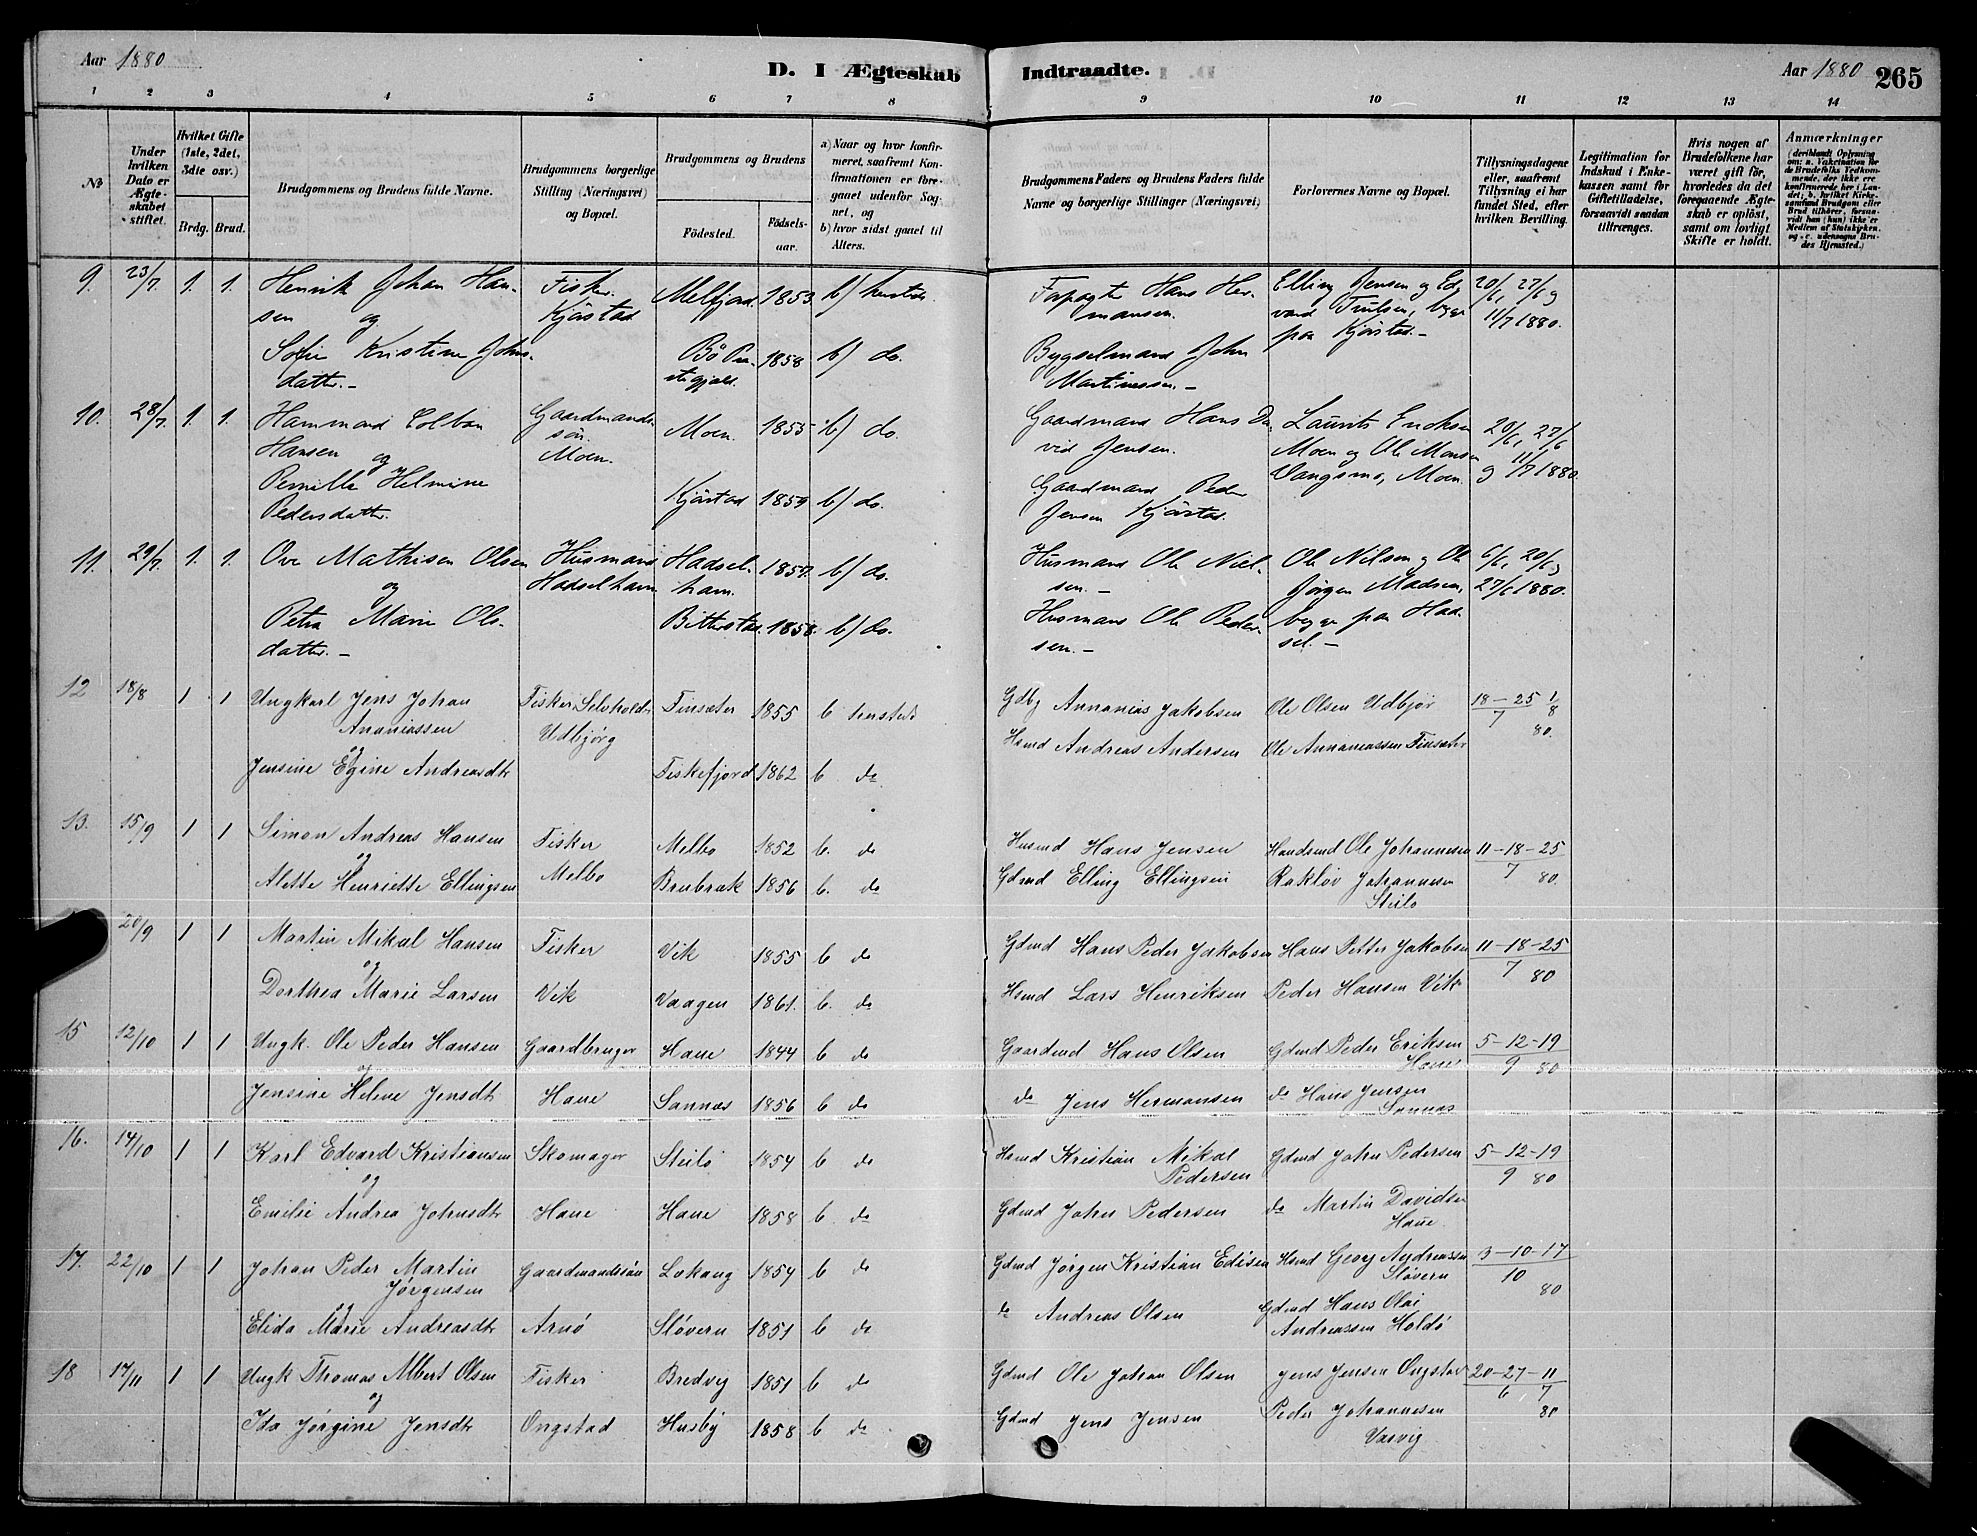 Aar 1880
D. I Ægteskab Indtraadte.
Aar 1880 265
1 2 3 4 5 6 7 8 9 10 11 12 13 14
No
Under hvilken Dato er Ægteskabet stiftet.
Hvilket Gifte (1ste, 2det, 3die osv.)
Brdg. Brud.
Brudgommens og Brudens fulde Navne.
Brudgommens borgerlige Stilling (Næringsvei) og Bopæl.
Brudgommens og Brudens
Fødested. Fødselsaar.
a) Naar og hvor konfirmeret, saafremt Konfirmationen er foregaaet udenfor Sognet, og
b) hvor sidst gaaet til Alters.
Brudgommens Faders og Brudens Faders fulde Navne og borgerlige Stillinger (Næringsvei)
Forlovernes Navne og Bopæl.
Tillysningsdagene eller, saafremt Tillysning ei har fundet Sted, efter hvilken Bevilling.
Legitimation for Indskud i Enkekassen samt for Giftetilladelse, forsaavidt saadan tiltrænges.
Hvis nogen af Brudefolkene har været gift før, hvorledes da det foregaaende Ægteskab er opløst, samt om lovligt Skifte er holdt.
Anmærkninger
9. 23/7. 1. 1. Henrik Johan Hansen og Fisker. Kjørstad Melfjord 1853. b) hersteds. Hans Hermansen. Elling Jensen og Edvard Trulsen, begge paa Kjørstad.- 20/6, 27/6 og 11/7 1880.
Sofie Kristine Johnsdatter.- Bø Præstegjæld. 1858 b) do. Bygselmand John Martinussen.-
10. 28/7. 1. 1. Hammond Colban Hansen og Gaardmandssøn. Moen. Moen. 1855 b) do. Gaardmand Hans David Jensen. Laurits Erichsen Moen og Ole Monsen Vangsmo, Moen 20/6, 27/6 og 11/7 1880.
Pernille Helmine Pedersdatter. Kjørstad 1859 b) do. Gaardmand Peder Jensen Kjørstad.
11. 29/7. 1. 1. Ove Mathisen Olsen og Husmand Hadselhavn Hadselhavn. 1857. b) do. Husmand Ole Nielsen.- Ole Nilsen og Ole Jørgen Madsen, begge paa Hadsel.- 6/6, 20/6 og 27/6 1880.
Petra Marie Olsdatter.- Bitterstad. 1858. b) do. Husmand Ole Pedersen.-
12 18/8 1 1 Ungkarl Jens Johan Ananiassen og Fisker, Selvholdr Udbjørg Finsæter 1855 b hersteds Gdbg Annanias Jakobsen Ole Olsen Udbjør 18-25/7 1/8 80.
Jensine Egine Andreasdtr Fiskefjord 1862 b do Hsmd Andreas Andersen Ole Annaniassen Finsæter
13. 15/9 1 1 Simon Andreas Hansen og Fisker Melbo Melbo 1852 b. do Husmd Hans Jensen Handsmd Ole Johannesen 11-18-25/7 80.
Alette Henriette Ellingsen Brubræk 1856 b. do Gdmd Elling Ellingsen Rakløv Johannesen Steilo
20/9 1 1 Martin Mikal Hansen og Fisker Vik Vik 1855 b do Gdmd Hans Peder Jakobsen Hans Petter Jakobsen 11-18-25/7 80
Dorthea Marie Larsen Vaagen 1861. b. do Hsmd Lars Henriksen Peder Hansen Vik
15 12/10 1 1 Ungk. Ole Peder Hansen og Gaardbruger Haue Haue 1844 b do Gaardmd Hans Olsen Gdmd Peder Eriksen Haue 5-12-19/9 80
Jensine Helene Jensdtr Sannas 1856 b do do Jens Hermansen do Hans Jensen Sannas
16. 14/10 1 1 Karl Edvard Kristiansen og Skomager Haue Steilo 1854 b do Hsmd Kristian Mikal Pedersen Gdmd John Pedersen 5-12-19/9 80
Emilie Andrea Johnsdtr Haue 1858 b. do Gdmd John Pedersen do Martin Davidsen Haue
17. 22/10 1 1 Johan Peder Martin Jørgensen og Gaardmandssøn Arnø Lokang 1854 b do Gdmd Jørgen Kristian Edisen Hsmd Georg Andreassen Sløvern 3-10-17/10 80
Elida Marie Andreasdtr Sløvern 1851 b do do Andreas Olsen Gdmd Hans Olai Andreassen Holdø
18 17/11 1 1 Ungk Thomas Albert Olsen og Fisker Ongstad Bredvig 1851 b do Gdmd Ole Johan Olsen Jens Jensen Ongstad 20-27/6 11/7 80
Ida Jørgine Jensdtr Husby 1858 b do Gdmd Jens Jensen Peder Johannesen Vasvig